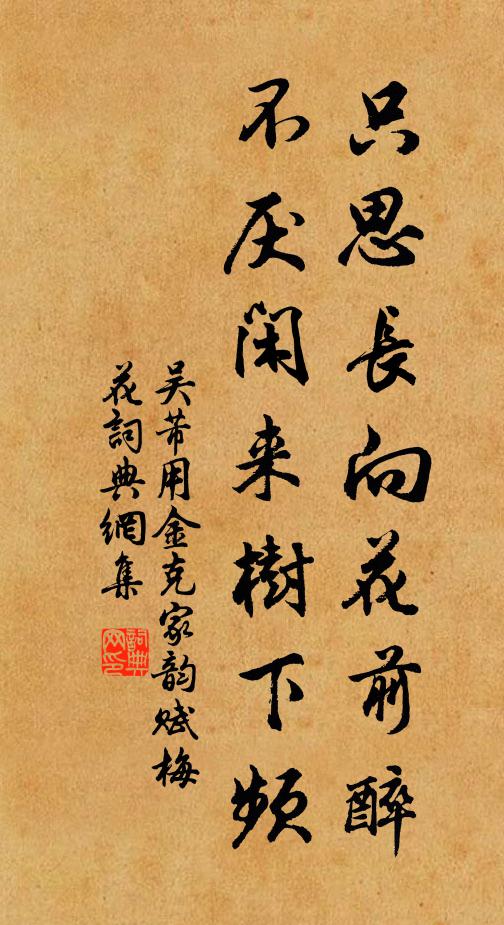 只思長向花前醉
不厌闲来樹下频
吴芾用金克家韵赋梅
花詞典網集
詞典
网印